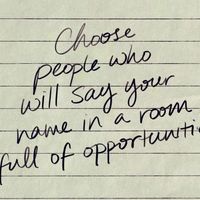 Choose
people who
will say your
name in a room
full of opportuniti